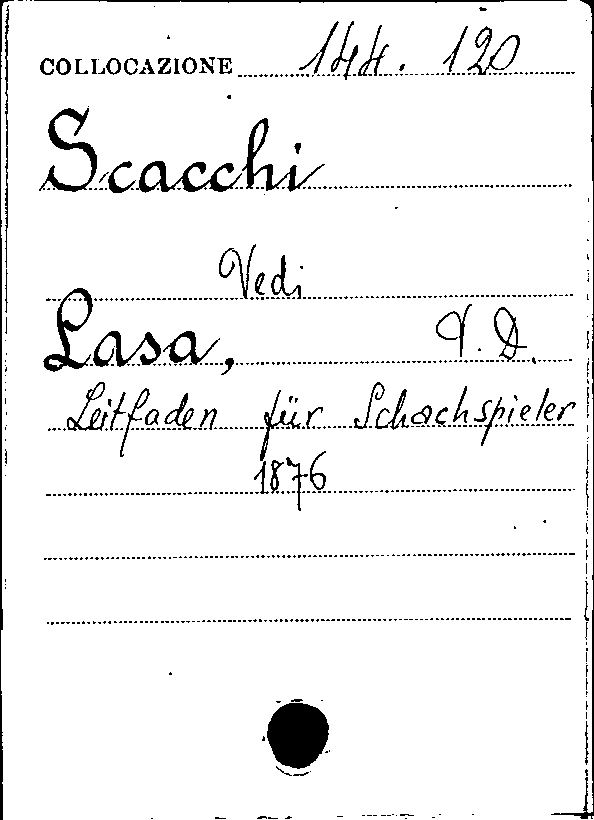 COLLOCAZIONE 144. 120
Scacchi
Vedi
Lasa, V. D.
Leitfaden für Schachspieler
1876